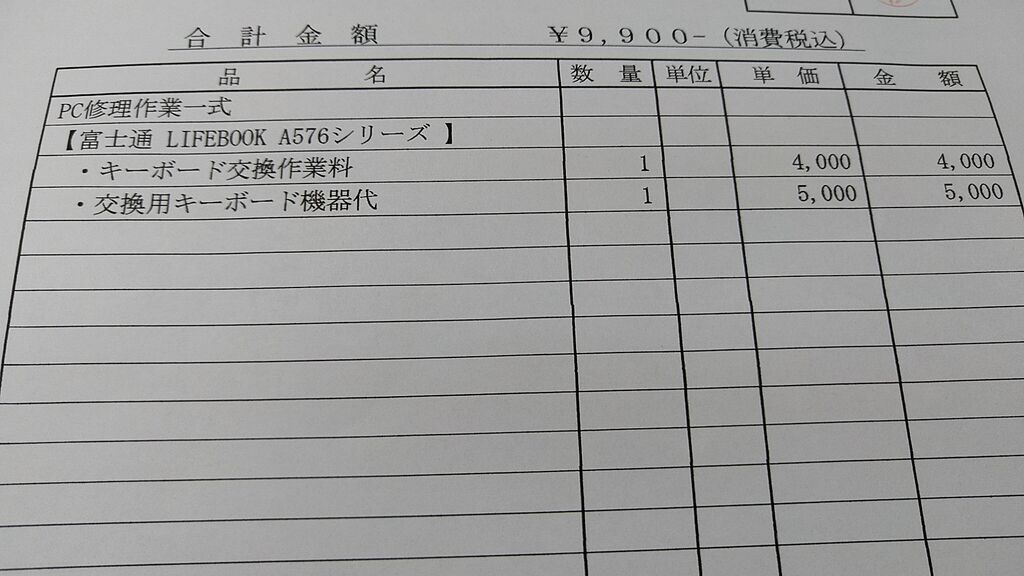 合計金額 ￥９,９００-（消費税込）
品名 数量 単位 単価 金額
PC修理作業一式
【富士通 LIFEBOOK A576シリーズ 】
・キーボード交換作業料 1 4,000 4,000
・交換用キーボード機器代 1 5,000 5,000